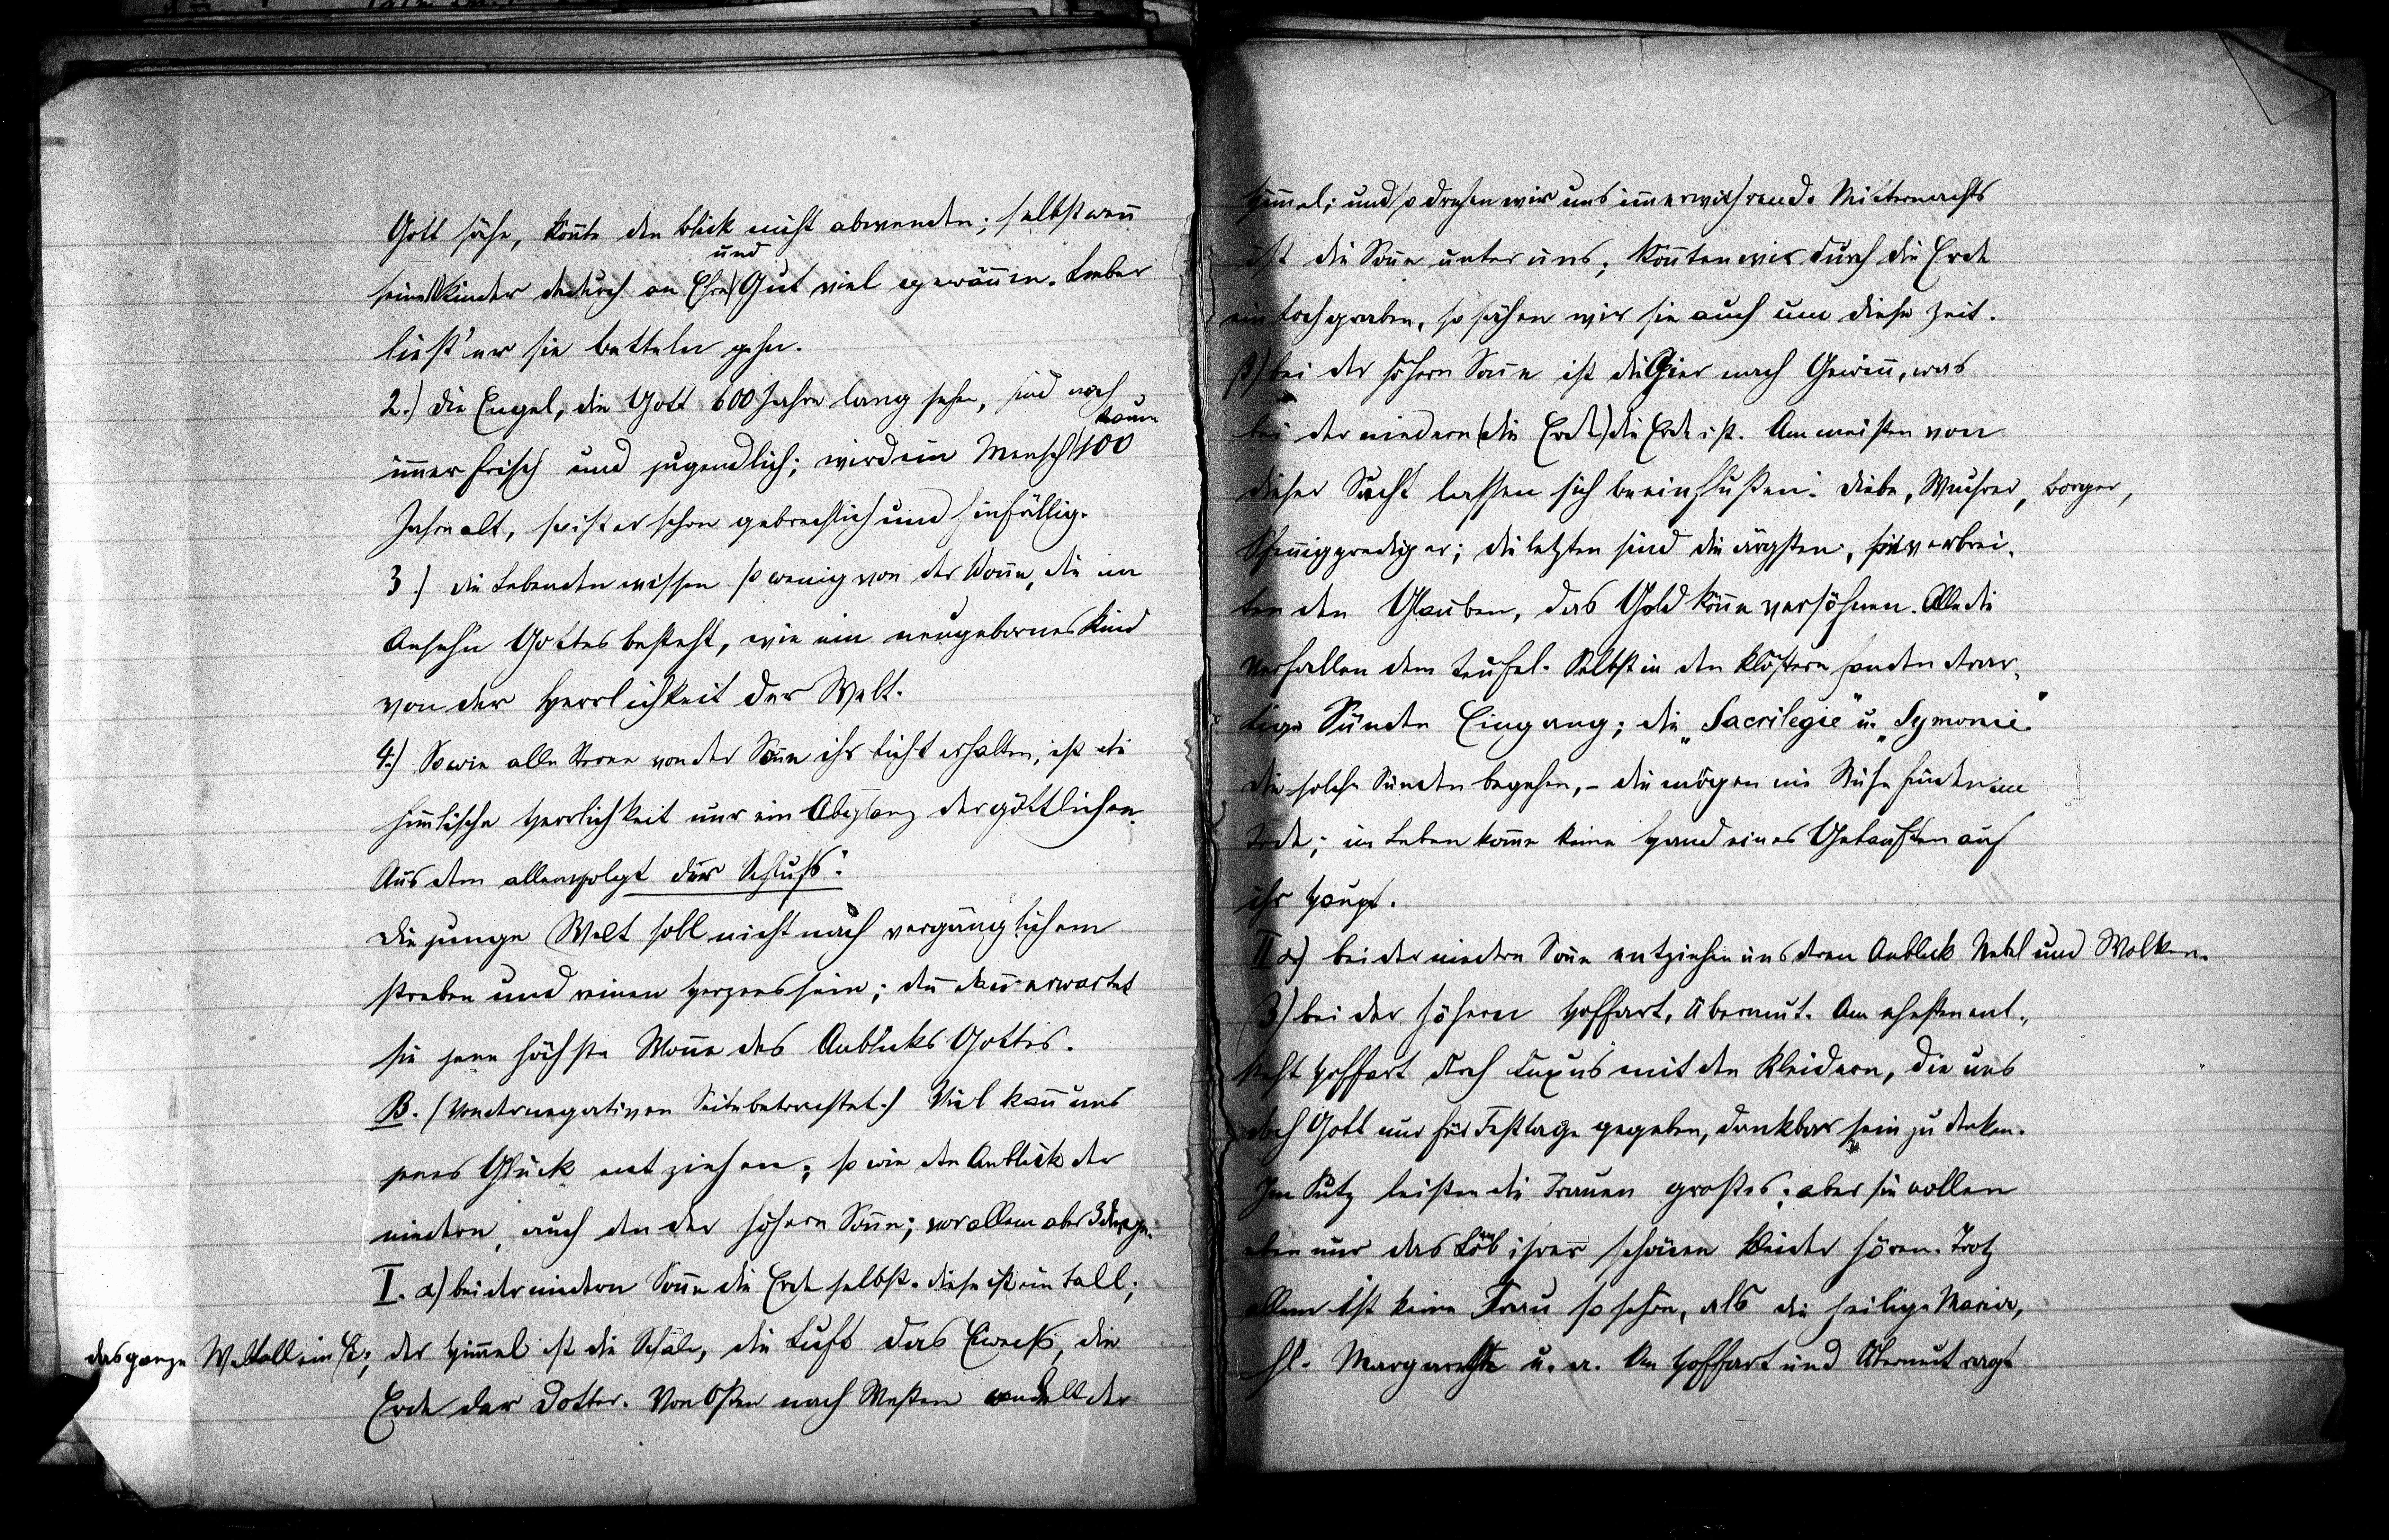 Gott sähe, könnte den Blick nicht abwenden; selbst wenn
seine Kinder dadurch an Ehre und Gut viel gewännen. Lieber
ließ' er sie betteln gehn.
2.) Die Engel, die Gott 600 Jahre lang sehen, sind noch
immer frisch und jugendlich; wird ein Mensch kaum 100
Jahre alt, so ist er schon gebrechlich und hinfällig.
3.) Die Lebenden wissen so wenig von der Wonne, die im
Ansehn Gottes besteht, wie ein neugebornes Kind
von der Herrlichkeit der Welt.
4.) Sowie alle Sterne von der Sonne ihr Licht erhalten, ist die
himlische Herrlichkeit nur ein Abglanz der göttlichen.
Aus dem allen folgt der Schluß:
Die junge Welt soll nicht nach vergänglichem
streben und reinen Herzens sein; denn dann erwartet
sie jene höchste Wonne des Anblicks Gottes.
B. (Von der negativen Seite betrachtet.) Viel kann uns
jenes Glück entziehen; so wie den Anblick der
niedern, auch den der höhern Sonne; vor allem aber 3 Dinge:
I. α) bei der niedern Sonne die Erde selbst. Diese ist ein Ball;
das ganze Weltall ein Ei; der Himmel ist die Schale, die Luft das Eiweiß, die
Erde der Dotter. Von Osten nach Westen wandelt der
Himmel; und so drehen wir uns immerwährend. Mitternachts
ist die Sonne unter uns; könnten wir durch die Erde
ein Loch graben, so sähen wir sie auch um diese Zeit.
β) bei der höhern Sonne ist die Gier nach Gewinn, was
bei der niedern (die Erde) die Erde ist. Am meisten von
dieser Sucht lassen sich beeinflußen: Diebe, Wuchrer, Borger,
Pfennigprediger; die letzten sind die ärgsten; sie verbrei-
ten den Glauben, das Gold könne versöhnen. Alle die
verfallen dem Teufel. Selbst in den Klöstern fanden derar-
tige Sünden Eingang; die „Sacrilegie" u. „Symonie."
Die solche Sünden begehen, – die mögen nie Ruhe finden im
Tode; im Leben komme keine Hand eines Getauften auf
ihr Haupt.
II α) bei der niedern Sonne entziehen uns deren Anblick Nebel und Wolken.
β) bei der höhern Hoffart, Übermut. Am ehesten ent-
steht Hoffart durch Luxus mit den Kleidern, die uns
doch Gott nur für Festtage gegeben, dankbar sein zu denken.
Im Putz leisten die Frauen großes; aber sie wollen
eben nur das Lob ihrer schönen Kleider hören. Trotz
allem ist keine Frau so schön, als die heilige Maria,
hl. Margarethe u. a. An Hoffart und Übermut ragt